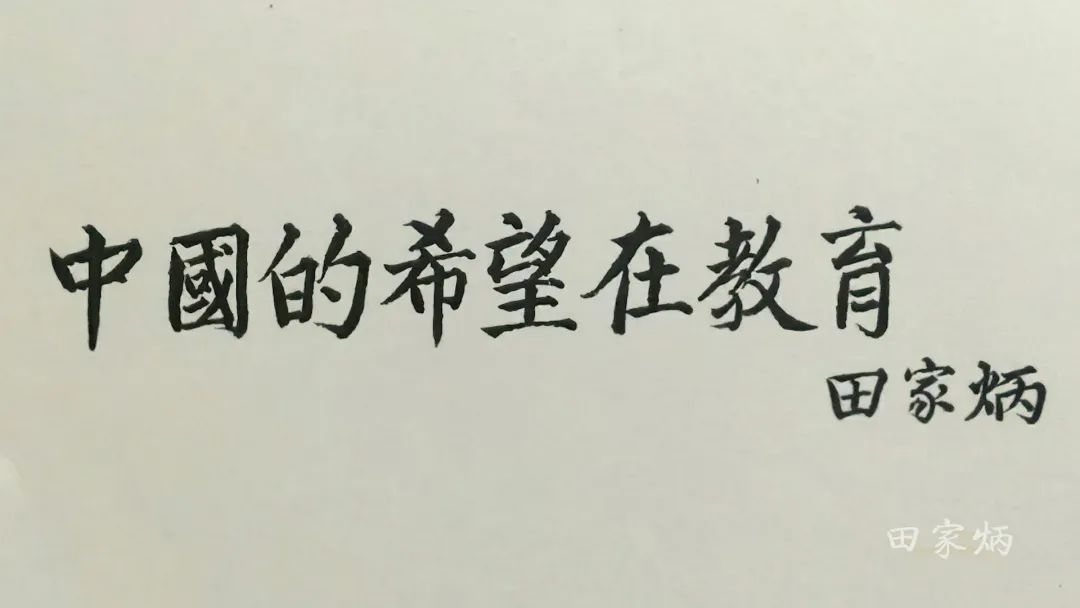 中國的希望在教育
田家炳
田家炳